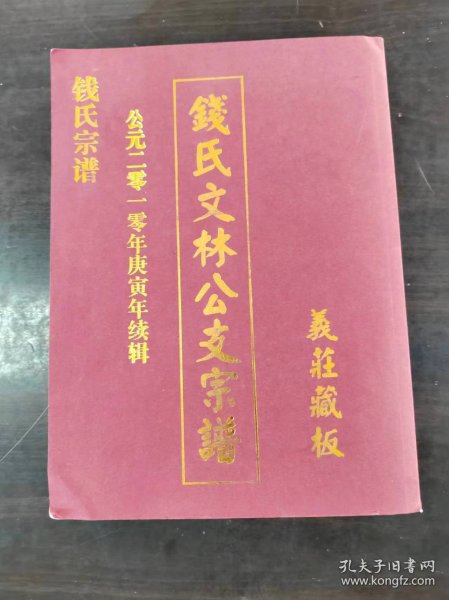 義莊藏板
錢氏文林公支宗譜
公元二零一零年庚寅年续辑
钱氏宗谱
孔夫子旧书网
www.kongfz.com